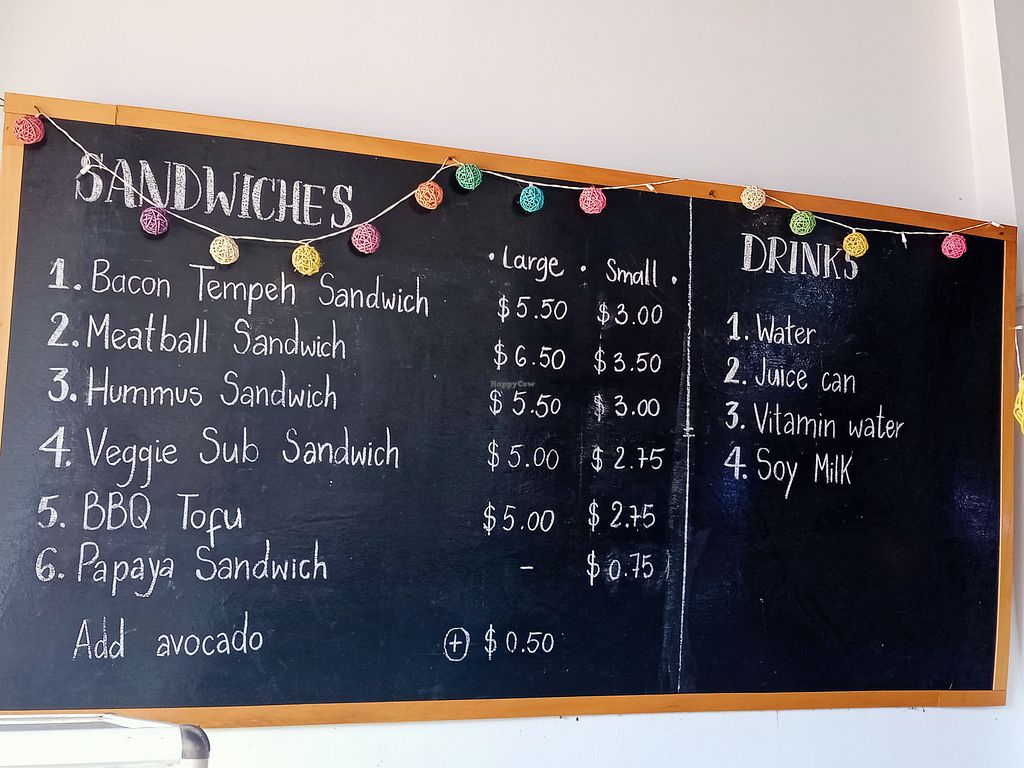 SANDWICHES
· Large · Small ·
1. Bacon Tempeh Sandwich $5.50 $3.00
2. Meatball Sandwich $6.50 $3.50
3. Hummus Sandwich $5.50 $3.00
4. Veggie Sub Sandwich $5.00 $2.75
5. BBQ Tofu $5.00 $2.75
6. Papaya Sandwich - $0.75
Add avocado + $0.50
DRINKS
1. Water
2. Juice can
3. Vitamin water
4. Soy Milk
HappyCow